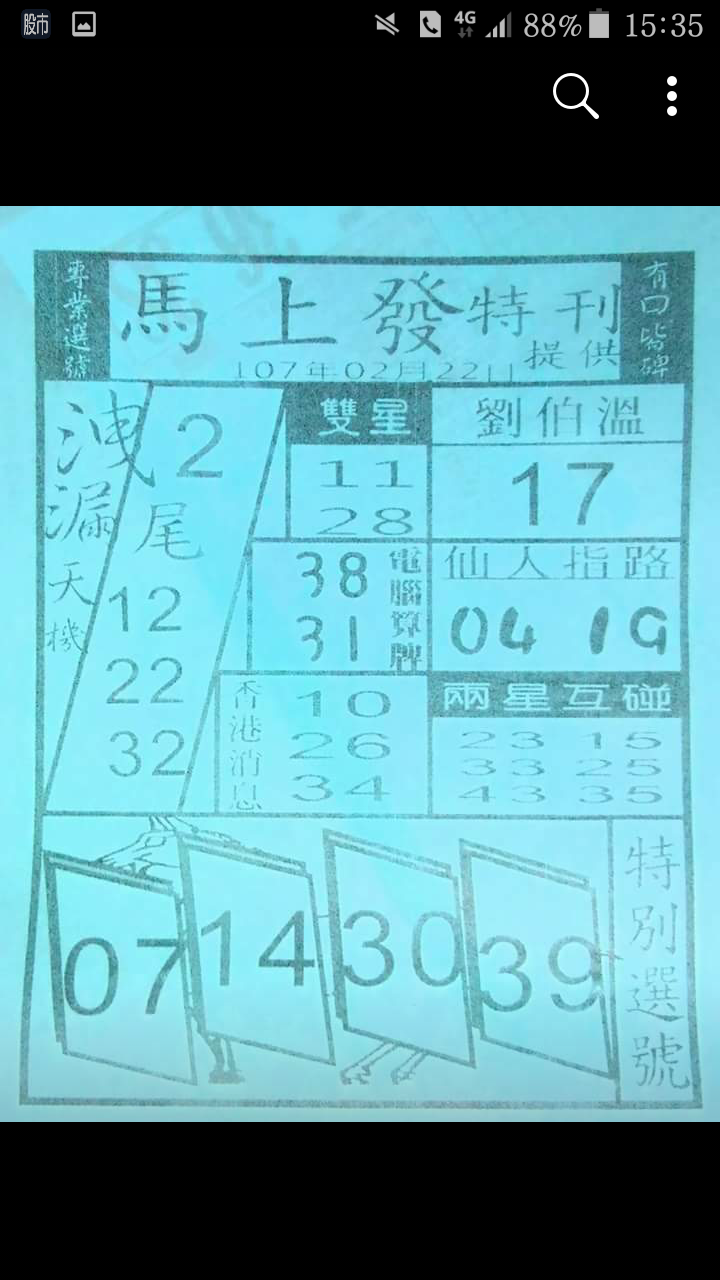 股市
4G
88%
15:35
專業選號
馬上發特刊
提供
107年02月22日
有口皆碑
洩漏天機
2
尾
12
22
32
雙星
11
28
劉伯溫
17
38
31
電腦算牌
仙人指路
04 19
香港消息
10
26
34
兩星互碰
23 15
33 25
43 35
07
14
30
39
特別選號